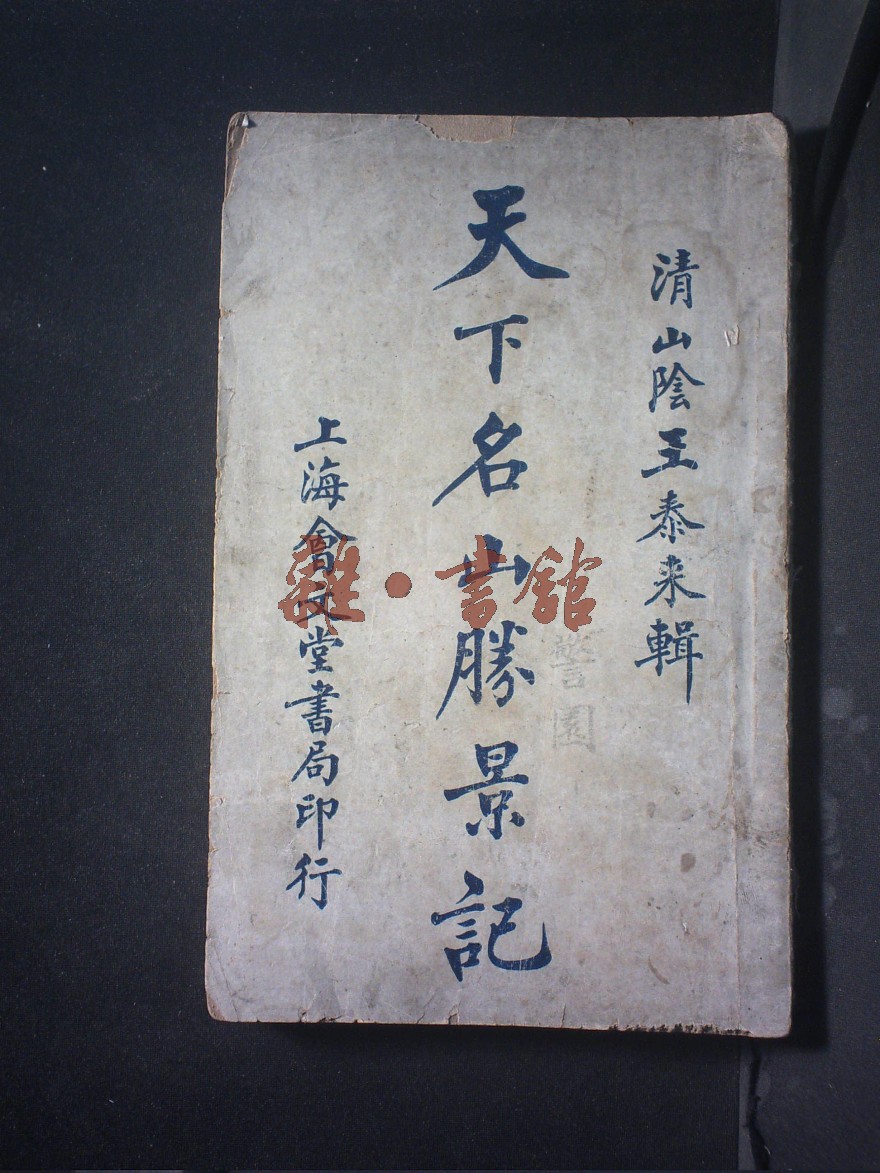 清山陰王泰来輯
天下名山勝景記
上海會文堂書局印行
警園
雜·書館